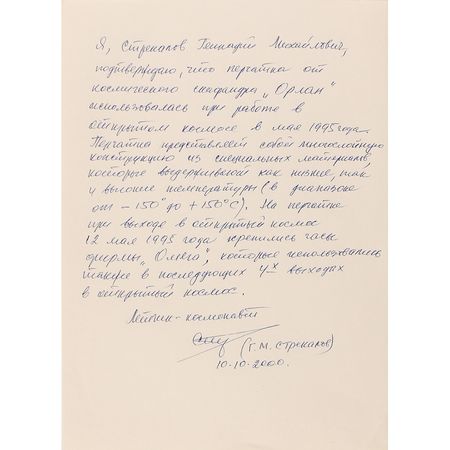 Я, Стрекалов Геннадий Михайлович,
подтверждаю, что перчатка от
космического скафандра „Орлан"
использовалась при работе в
открытом космосе в мае 1995 года.
Перчатка представляет собой многослойную
конструкцию из специальных материалов,
которые выдерживают как низкие, так
и высокие температуры (в диапазоне
от −150° до +150°С). На перчатке
при выходе в открытый космос
12 мая 1995 года крепились часы
фирмы „Омега", которые использовались
также в последующих 4х выходах
в открытый космос.
Летчик-космонавт
(Г.М. Стрекалов)
10-10-2000.